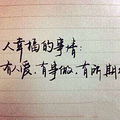 人幸福的事情:
有人爱.有事做.有所期